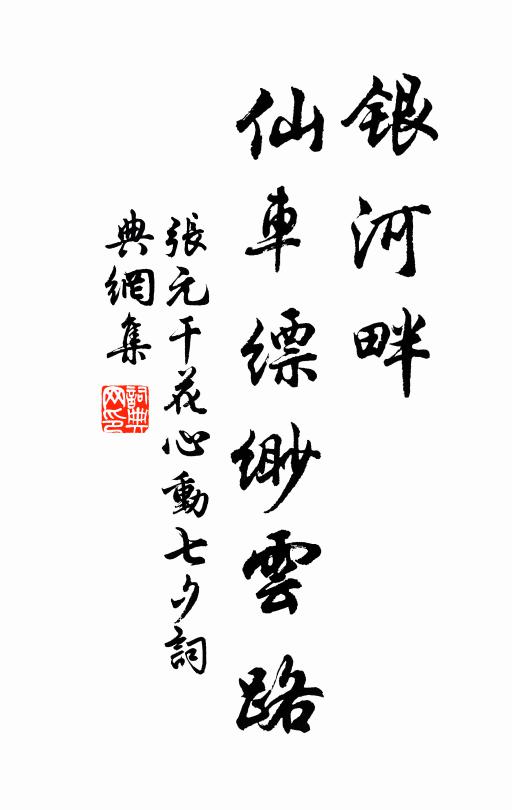 銀河畔
仙車縹緲雲路
張元干花心動七夕詞
典網集
詞典
网印